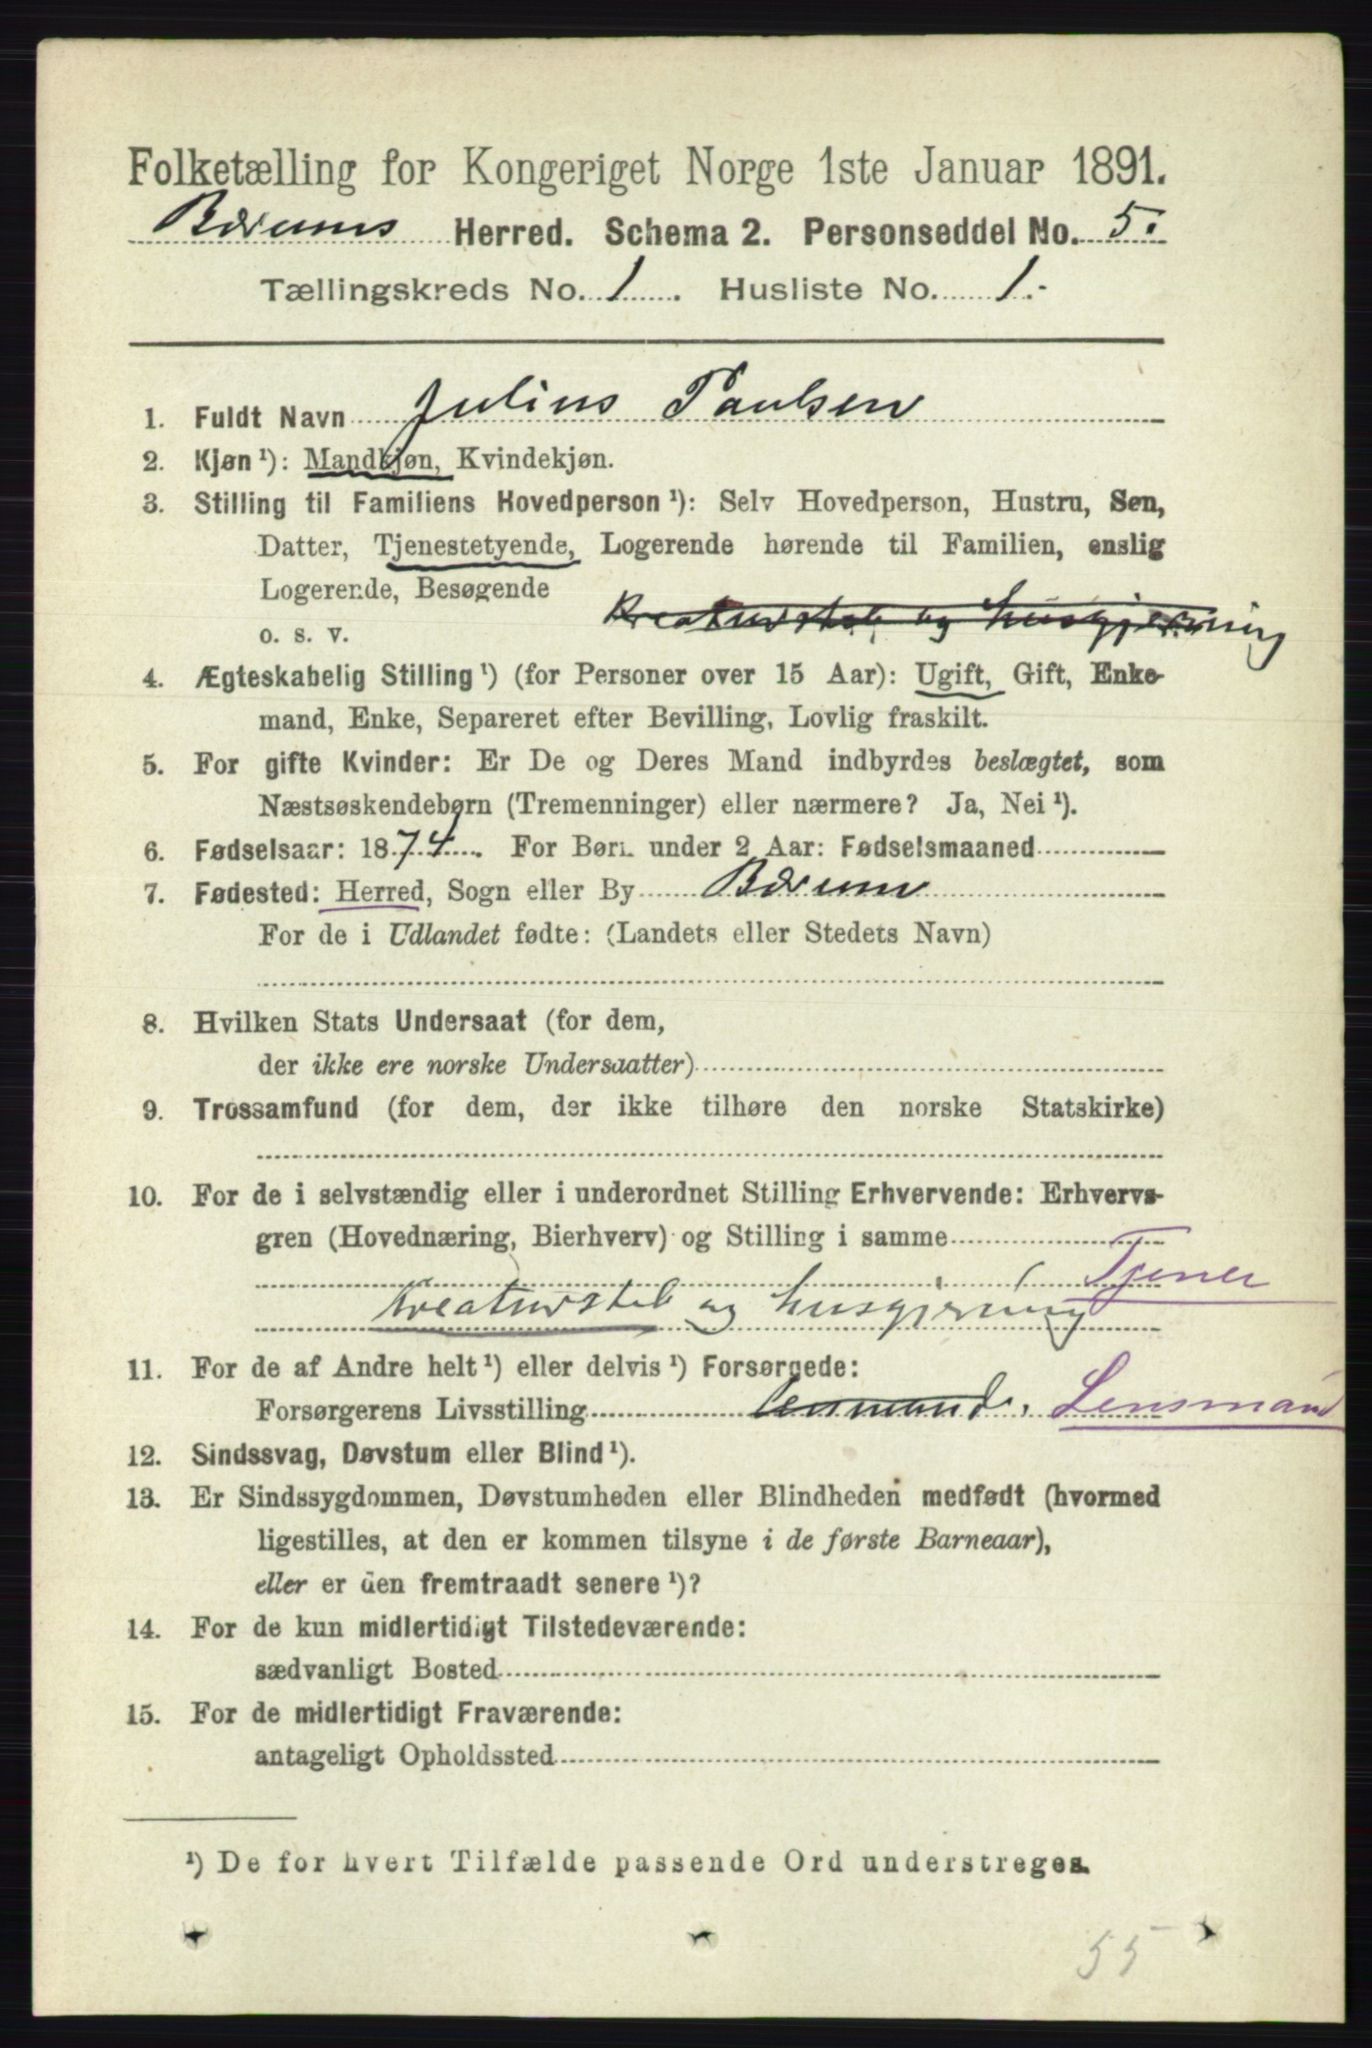 Folketælling for Kongeriget Norge 1ste Januar 1891.
Bærums Herred. Schema 2. Personseddel No. 5.
Tællingskreds No. 1. Husliste No. 1.-
1. Fuldt Navn Julius Paulsen
2. Kjøn ¹): Mandkjøn, Kvindekjøn.
3. Stilling til Familiens Hovedperson ¹): Selv Hovedperson, Hustru, Søn,
Datter, Tjenestetyende, Logerende hørende til Familien, enslig
Logerende, Besøgende
o. s. v. Kreaturstel og husgjerning
4. Ægteskabelig Stilling ¹) (for Personer over 15 Aar): Ugift, Gift, Enke-
mand, Enke, Separeret efter Bevilling, Lovlig fraskilt.
5. For gifte Kvinder: Er De og Deres Mand indbyrdes beslægtet, som
Næstsøskendebørn (Tremenninger) eller nærmere? Ja, Nei ¹).
6. Fødselsaar: 1874. For Børn under 2 Aar: Fødselsmaaned
7. Fødested: Herred, Sogn eller By Bærum
For de i Udlandet fødte: (Landets eller Stedets Navn)
8. Hvilken Stats Undersaat (for dem,
der ikke ere norske Undersaatter)
9. Trossamfund (for dem, der ikke tilhøre den norske Statskirke)
10. For de i selvstændig eller i underordnet Stilling Erhvervende: Erhvervs-
gren (Hovednæring, Bierhverv) og Stilling i samme
Tjener
Kreaturstel og husgjerning
11. For de af Andre helt ¹) eller delvis ¹) Forsørgede:
Forsørgerens Livsstilling Lensmand. Lensmand
12. Sindssvag, Døvstum eller Blind ¹).
13. Er Sindssygdommen, Døvstumheden eller Blindheden medfødt (hvormed
ligestilles, at den er kommen tilsyne i de første Barneaar),
eller er den fremtraadt senere ¹)?
14. For de kun midlertidigt Tilstedeværende:
sædvanligt Bosted
15. For de midlertidigt Fraværende:
antageligt Opholdssted
¹) De for hvert Tilfælde passende Ord understreges.
55